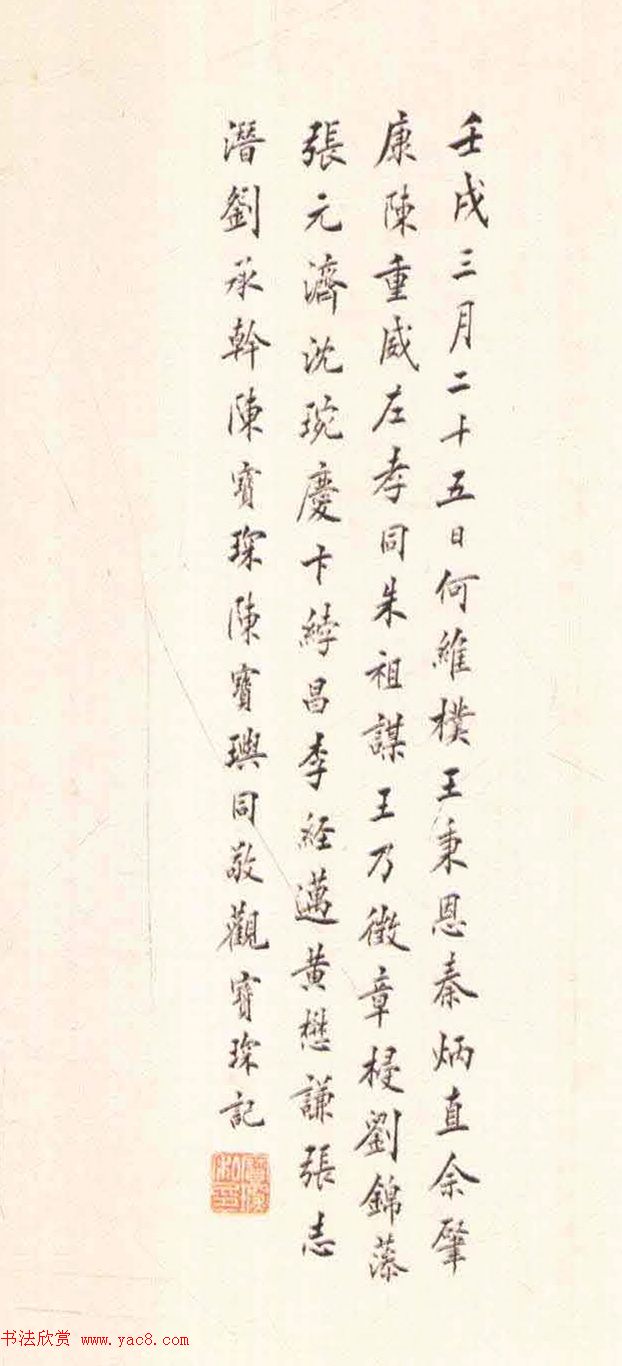 壬戌三月二十五日何維樸王秉恩秦炳直余肇
康陳重威左孝同朱祖謀王乃徵章梫劉錦藻
張元濟沈琬慶卞綍昌李經邁黃懋謙張志
潛劉承幹陳寶琛陳寶璵同敬觀寶琛記
书法欣赏 www.yac8.com